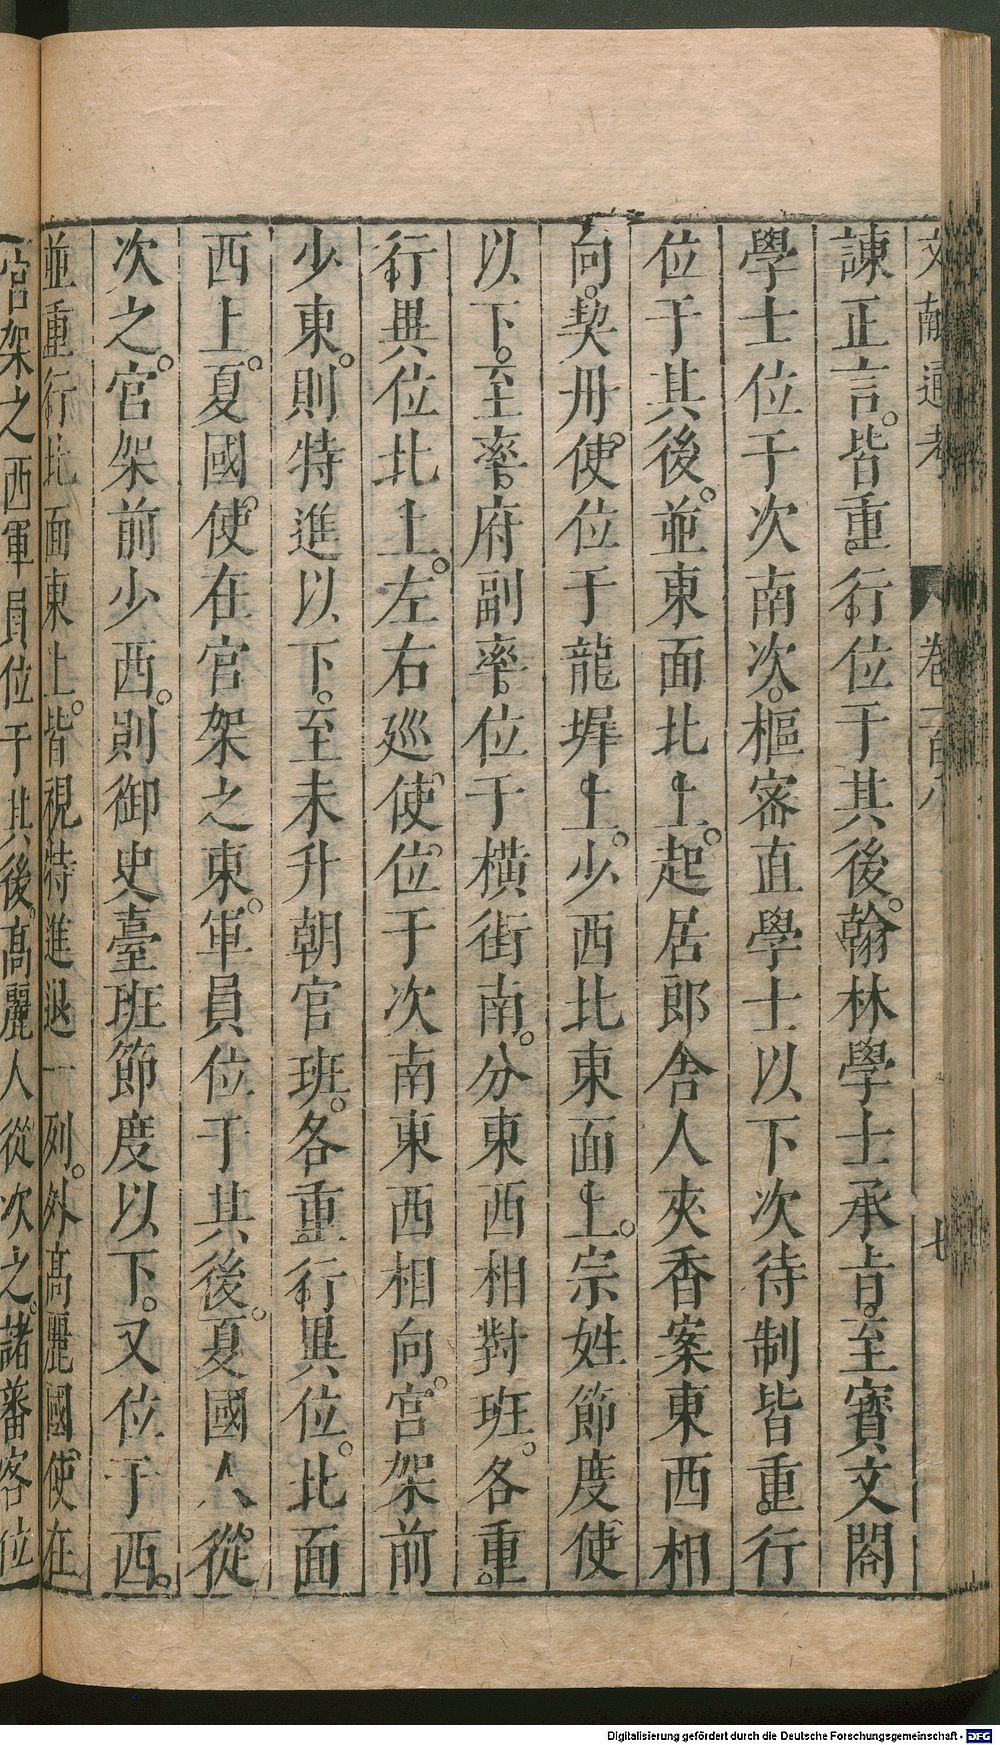 文獻通考　卷一百八　七
諫正言。皆重行位于其後。翰林學士承旨。至寶文閣
學士位于次南次。樞密直學士以下次待制皆重行
位于其後。並東面北上。起居郎舍人夾香案東西相
向。契丹使位于龍墀上。少西北東面上。宗姓節度使
以下。至率府副率。位于橫街南。分東西相對班。各重
行異位北上。左右巡使位于次南東西相向。宮架前
少東。則特進以下。至未升朝官班。各重行異位。北面
西上。夏國使在宮架之東。軍員位于其後。夏國人從
次之。宮架前少西。則御史臺班節度以下。又位于西。
並重行北面東上。皆視特進退一列。外高麗國使在
宮架之西軍員位于其後。高麗人從次之。諸蕃客位
Digitalisierung gefördert durch die Deutsche Forschungsgemeinschaft - DFG